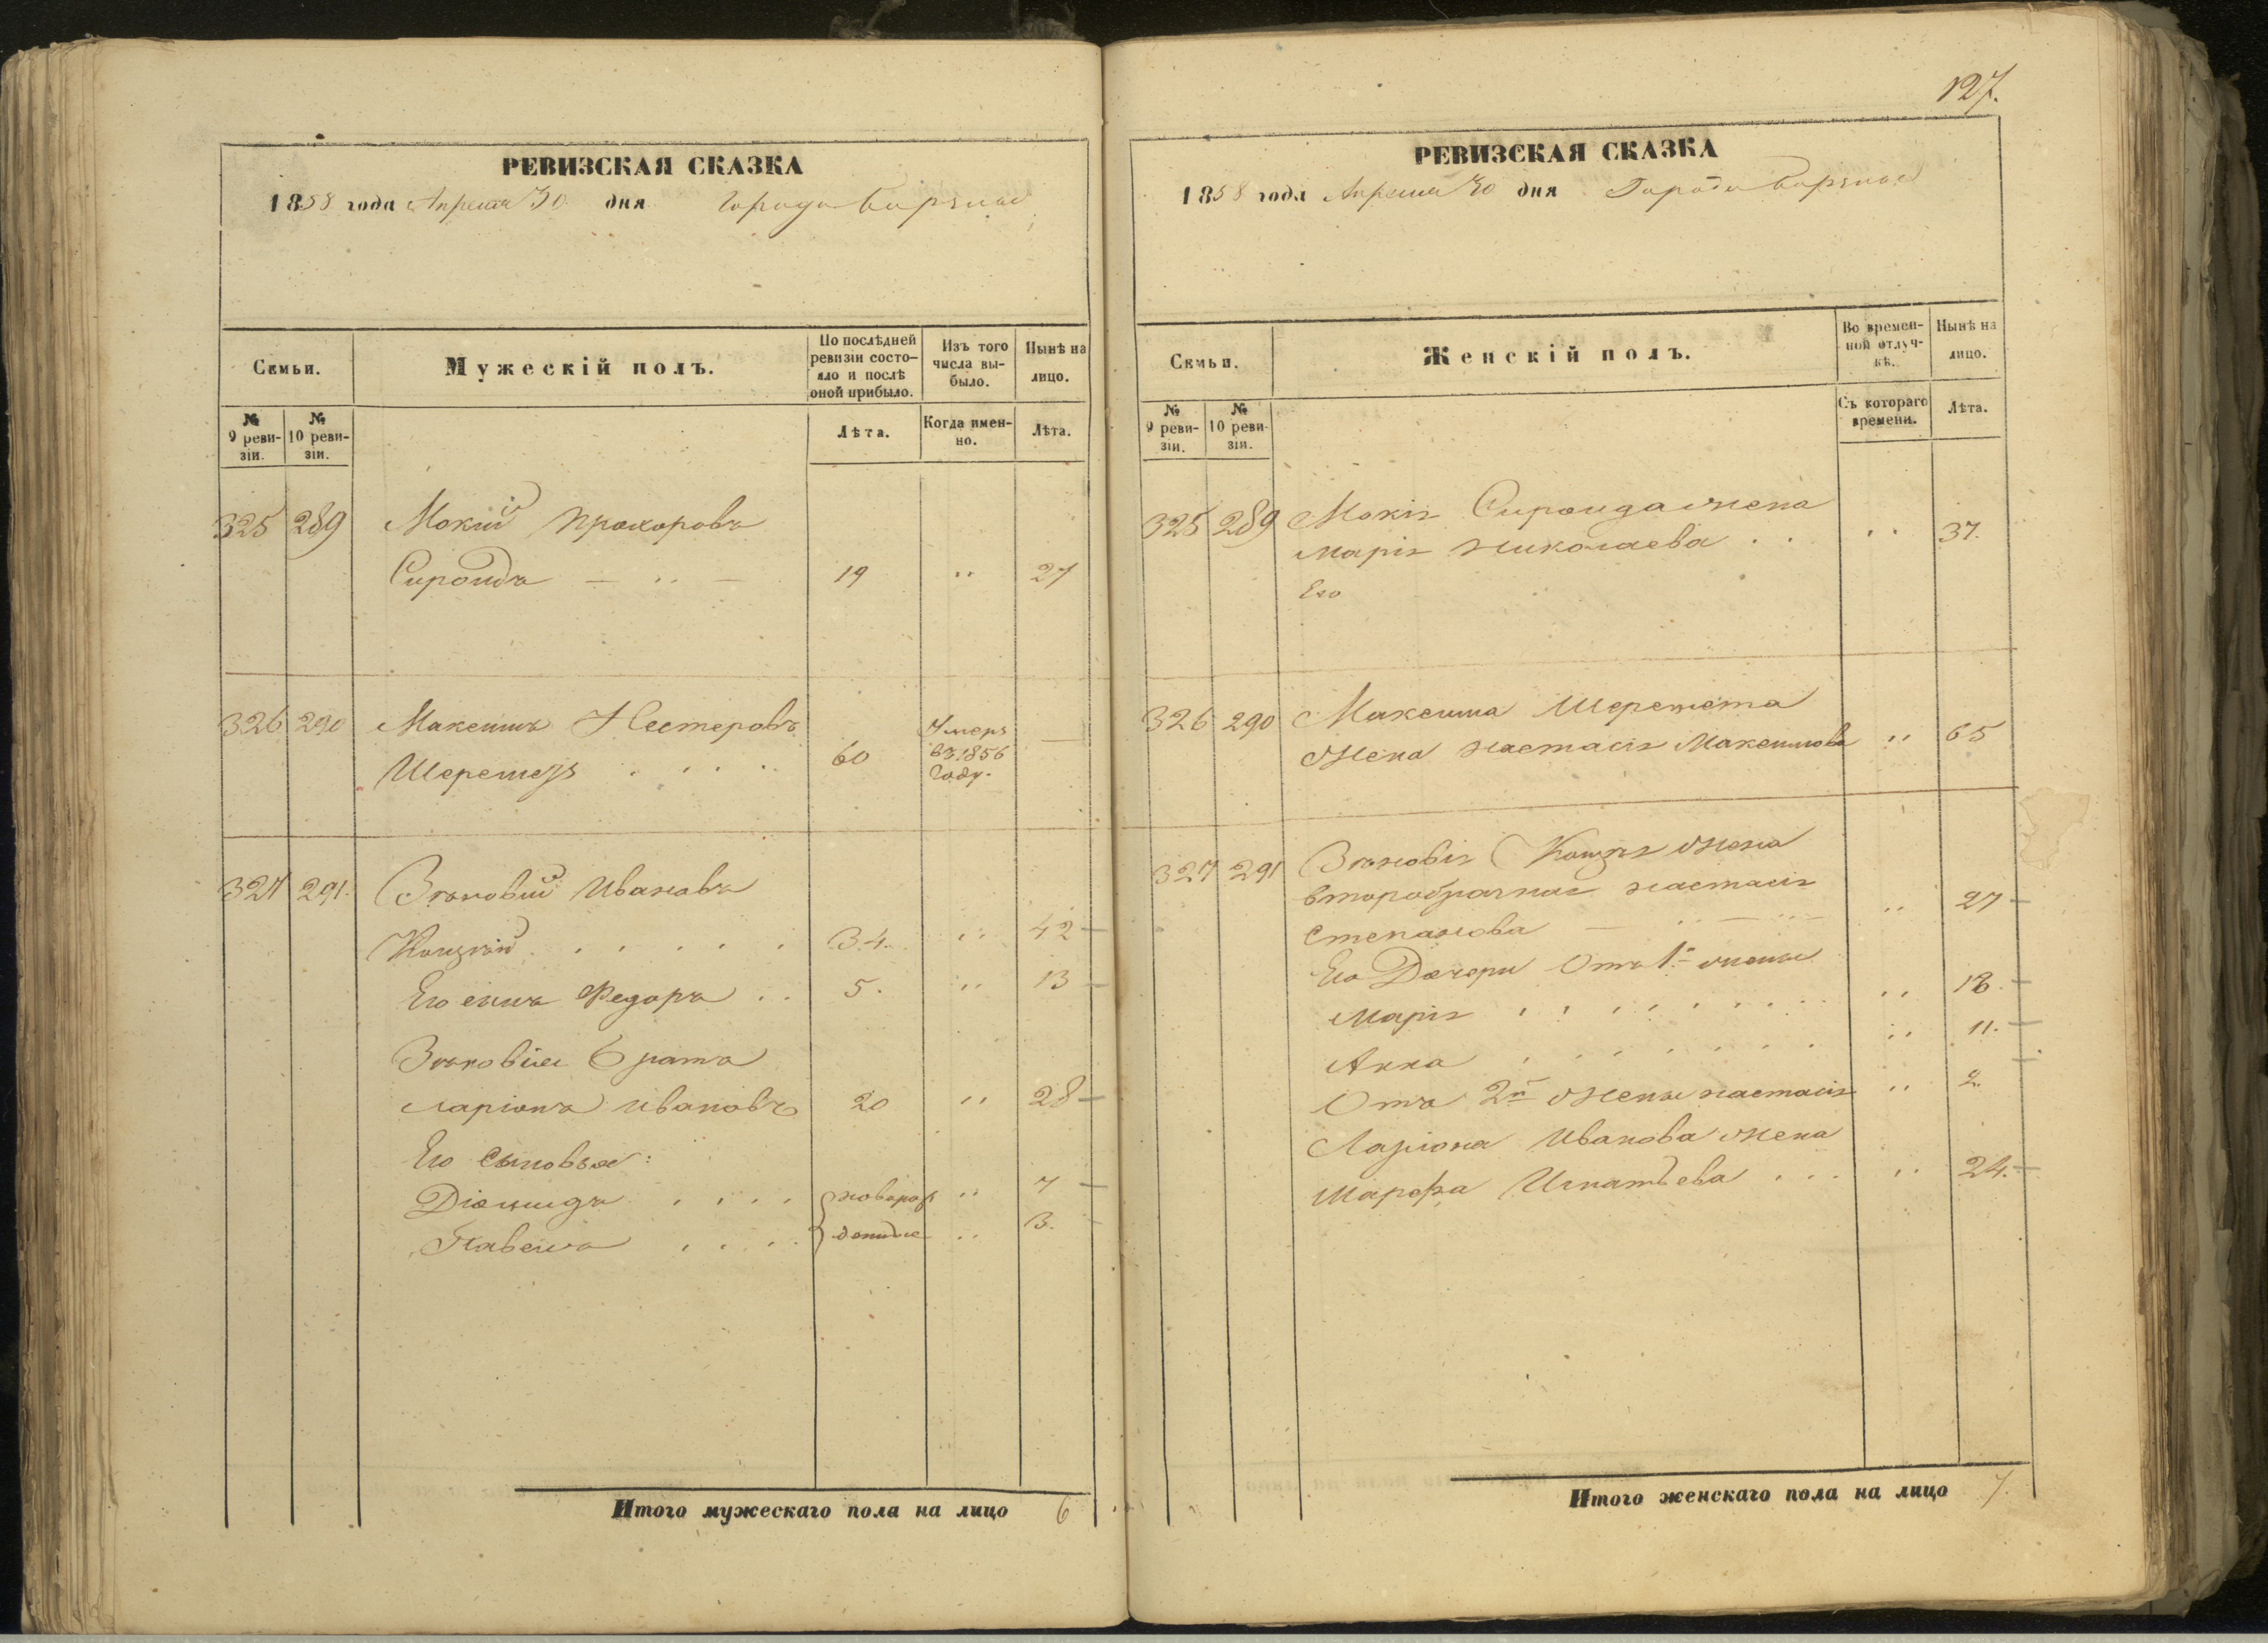 РЕВИЗСКАЯ СКАЗКА
1858 года Апреля 30 дня Города
Семьи.
Мужескій полъ.
По послѣдней ревизіи состо-
яло и послѣ
оной прибыло.
Изъ того
числа вы-
было.
Нынѣ на
лицо.
№
9 реви-
зіи.
№
10 реви-
зіи.
Лѣта.
Когда имен-
но.
Лѣта.
325 289 Мокій Прохоровъ
19 " 27
326 290 Максимъ Нестеровъ
Шереметъ 60 Умеръ
въ 1856
году. —
327 291. Зѣновій Ивановъ
34. " 42 —
Его сынъ Федоръ . . 5. " 13 —
Зѣновія брата
Ларіонъ Ивановъ 20 " 28 —
Его сыновья:
. . . . новорож " 7 —
. . . . денные " 3. —
Итого мужескаго пола на лицо 6
127.
РЕВИЗСКАЯ СКАЗКА
1858 года Апреля 30 дня Города
Семьи.
Женскій полъ.
Во времен-
ной отлуч-
кѣ.
Нынѣ на
лицо.
№
9 реви-
зіи.
№
10 реви-
зіи.
Съ котораго
времени.
Лѣта.
325 289 Мокія жена
Марія Николаева . . " 37.
Его
326 290 Максима Шеремета
жена Настасія Максимова " 65
327 291 Зѣновія жена
второбрачная Настасія
Степанова — " — " 27 —
Его Дочери Отъ 1й жены
Марія . . . . . . . " 13. —
Анна . . . . . . . " 11. —
Отъ 2й жены Настасія " 2. —
Ларіона Иванова жена
Марфа Игнатьева . . . " 24. —
Итого женскаго пола на лицо 7.